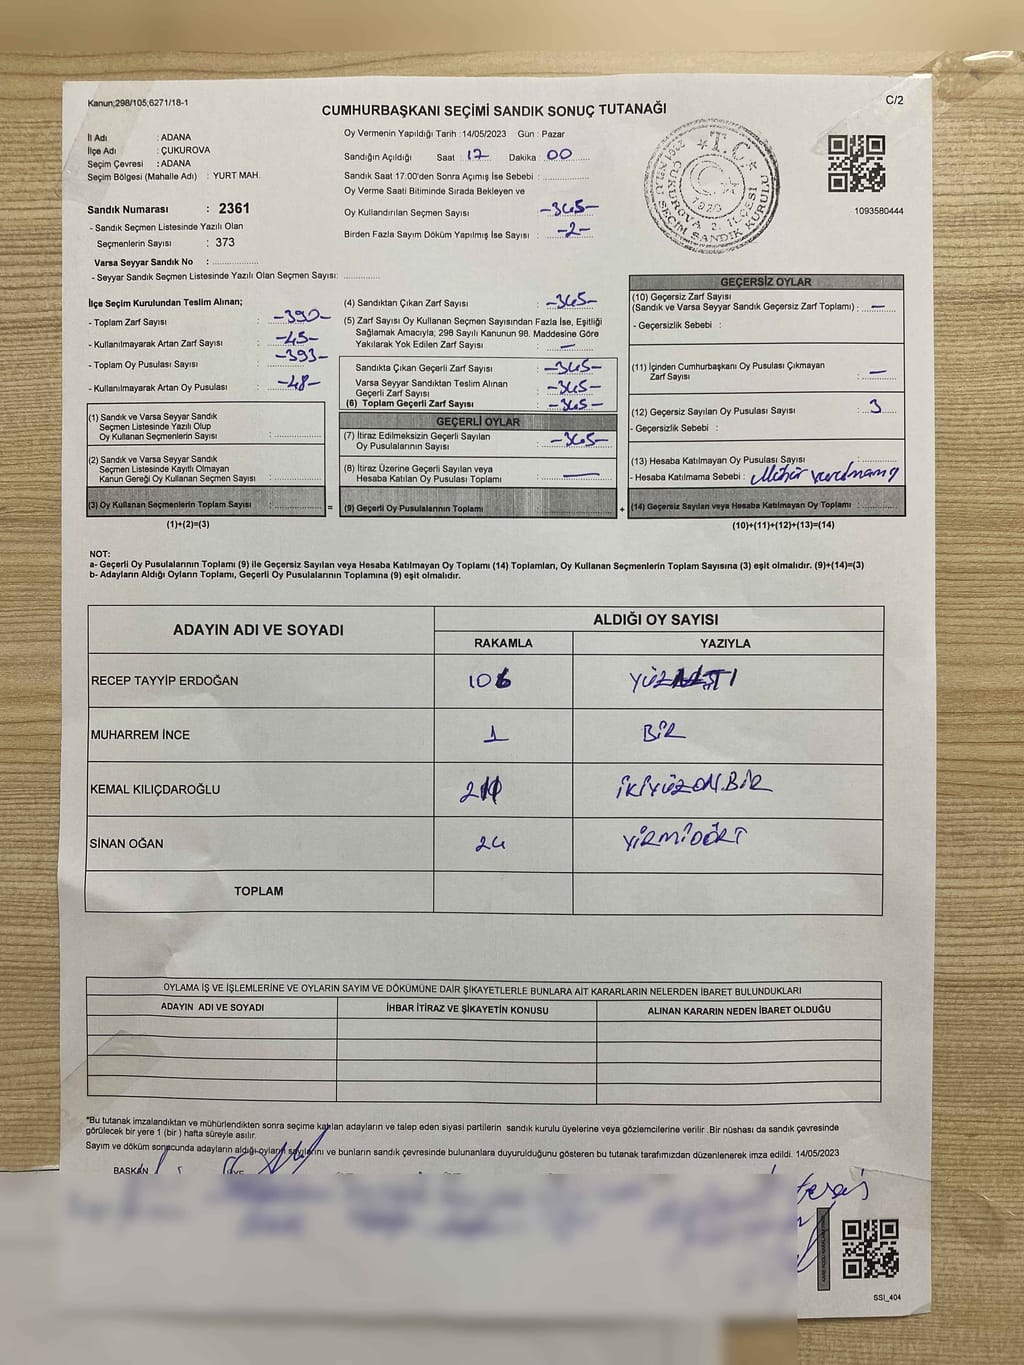 Kanun;298/105,6271/18-1
C/2
CUMHURBAŞKANI SEÇİMİ SANDIK SONUÇ TUTANAĞI
İl Adı : ADANA
İlçe Adı : ÇUKUROVA
Seçim Çevresi : ADANA
Seçim Bölgesi (Mahalle Adı) : YURT MAH.
Sandık Numarası : 2361
- Sandık Seçmen Listesinde Yazılı Olan
Seçmenlerin Sayısı : 373
Varsa Seyyar Sandık No :
- Seyyar Sandık Seçmen Listesinde Yazılı Olan Seçmen Sayısı:
Oy Vermenin Yapıldığı Tarih : 14/05/2023 Gün : Pazar
Sandığın Açıldığı Saat 17 Dakika 00
Sandık Saat 17:00'den Sonra Açımış İse Sebebi :
Oy Verme Saati Bitiminde Sırada Bekleyen ve
Oy Kullandırılan Seçmen Sayısı -345-
Birden Fazla Sayım Döküm Yapılmış İse Sayısı -2-
T.C.
1923
1093580444
İlçe Seçim Kurulundan Teslim Alınan;
- Toplam Zarf Sayısı : -390-
- Kullanılmayarak Artan Zarf Sayısı : -45-
- Toplam Oy Pusulası Sayısı : -393-
- Kullanılmayarak Artan Oy Pusulası : -48-
(1) Sandık ve Varsa Seyyar Sandık
Seçmen Listesinde Yazılı Olup
Oy Kullanan Seçmenlerin Sayısı :
(2) Sandık ve Varsa Seyyar Sandık
Seçmen Listesinde Kayıtlı Olmayan
Kanun Gereği Oy Kullanan Seçmen Sayısı :
(3) Oy Kullanan Seçmenlerin Toplam Sayısı :
(1)+(2)=(3)
=
(4) Sandıktan Çıkan Zarf Sayısı : -345-
(5) Zarf Sayısı Oy Kullanan Seçmen Sayısından Fazla İse, Eşitliği
Sağlamak Amacıyla; 298 Sayılı Kanunun 98. Maddesine Göre
Yakılarak Yok Edilen Zarf Sayısı : —
Sandıkta Çıkan Geçerli Zarf Sayısı : -345-
Varsa Seyyar Sandıktan Teslim Alınan
Geçerli Zarf Sayısı : -345-
(6) Toplam Geçerli Zarf Sayısı : -345-
GEÇERLİ OYLAR
(7) İtiraz Edilmeksizin Geçerli Sayılan
Oy Pusulalarının Sayısı : -345-
(8) İtiraz Üzerine Geçerli Sayılan veya
Hesaba Katılan Oy Pusulası Toplamı : —
(9) Geçerli Oy Pusulalarının Toplamı :
+
GEÇERSİZ OYLAR
(10) Geçersiz Zarf Sayısı
(Sandık ve Varsa Seyyar Sandık Geçersiz Zarf Toplamı) : —
- Geçersizlik Sebebi :
(11) İçinden Cumhurbaşkanı Oy Pusulası Çıkmayan
Zarf Sayısı : —
(12) Geçersiz Sayılan Oy Pusulası Sayısı : 3
- Geçersizlik Sebebi :
(13) Hesaba Katılmayan Oy Pusulası Sayısı :
- Hesaba Katılmama Sebebi : Mühür
(14) Geçersiz Sayılan veya Hesaba Katılmayan Oy Toplamı :
(10)+(11)+(12)+(13)=(14)
NOT:
a- Geçerli Oy Pusulalarının Toplamı (9) ile Geçersiz Sayılan veya Hesaba Katılmayan Oy Toplamı (14) Toplamları, Oy Kullanan Seçmenlerin Toplam Sayısına (3) eşit olmalıdır. (9)+(14)=(3)
b- Adayların Aldığı Oyların Toplamı, Geçerli Oy Pusulalarının Toplamına (9) eşit olmalıdır.
ADAYIN ADI VE SOYADI ALDIĞI OY SAYISI
RAKAMLA YAZIYLA
RECEP TAYYİP ERDOĞAN 106
MUHARREM İNCE 1 BİR
KEMAL KILIÇDAROĞLU 211 İKİYÜZONBİR
SİNAN OĞAN 24 YİRMİDÖRT
TOPLAM
OYLAMA İŞ VE İŞLEMLERİNE VE OYLARIN SAYIM VE DÖKÜMÜNE DAİR ŞİKAYETLERLE BUNLARA AİT KARARLARIN NELERDEN İBARET BULUNDUKLARI
ADAYIN ADI VE SOYADI İHBAR İTİRAZ VE ŞİKAYETİN KONUSU ALINAN KARARIN NEDEN İBARET OLDUĞU
*Bu tutanak imzalandıktan ve mühürlendikten sonra seçime katılan adayların ve talep eden siyasi partilerin sandık kurulu üyelerine veya gözlemcilerine verilir .Bir nüshası da sandık çevresinde
görülecek bir yere 1 (bir ) hafta süreyle asılır.
Sayım ve döküm sonucunda adayların aldığı oyların sayılarını ve bunların sandık çevresinde bulunanlara duyurulduğunu gösteren bu tutanak tarafımızdan düzenlenerek imza edildi. 14/05/2023
BAŞKAN
SSI_404